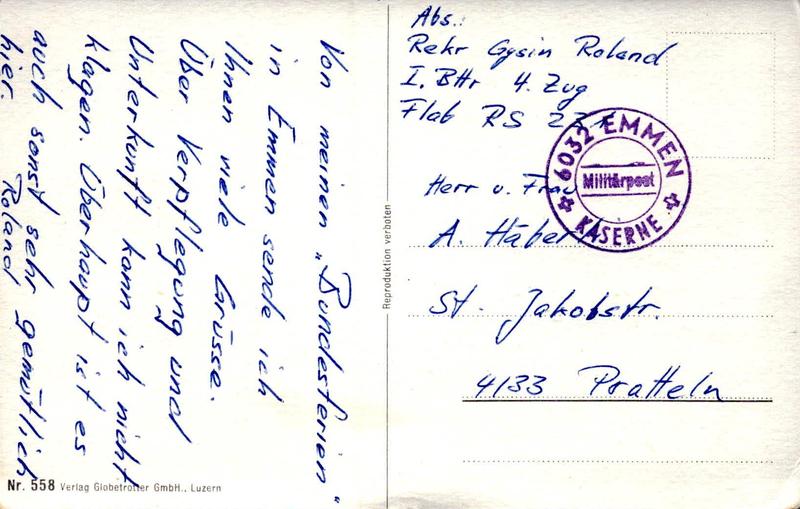 Von meinen „Bundesferien"
in Emmen sende ich
Ihnen viele Grüsse.
Über Verpflegung und
Unterkunft kann ich nicht
klagen. Überhaupt ist es
auch sonst sehr gemütlich
hier.
Roland
Nr. 558 Verlag Globetrotter GmbH., Luzern
Reproduktion verboten
Abs.:
Rekr Gysin Roland
I. Bttr 4. Zug
Flab RS
6032 EMMEN
Militärpost
KASERNE
Herr u. Frau
A. Häber
St. Jakobstr.
4133 Pratteln